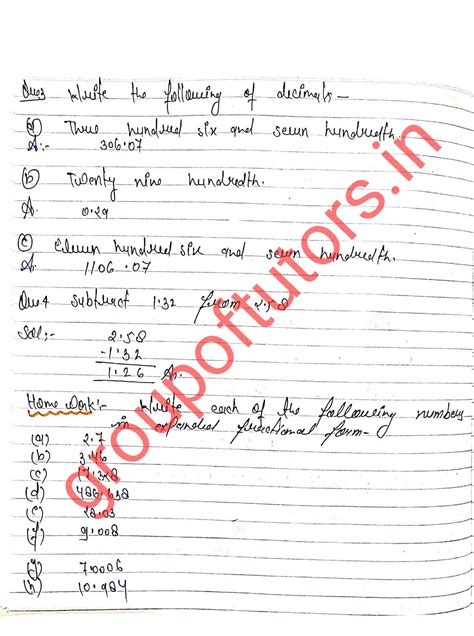 Ques Write the following of decimals -
(a) Three hundred six and seven hundredth.
A:- 306.07
(b) Twenty nine hundredth.
A. 0.29
(c) Eleven hundred six and seven hundredth.
A. 1106.07
Que4 subtract 1.32 from 2.58
Sol:- 2.58
-1.32
1.26 A.
Home Work:- Write each of the following numbers
in expanded fractional form-
(a) 2.7
(b) 3.46
(c) 17.328
(d) 486.638
(e) 28.03
(f) 9.008
(g) 7.0006
(h) 10.984
groupoftutors.in